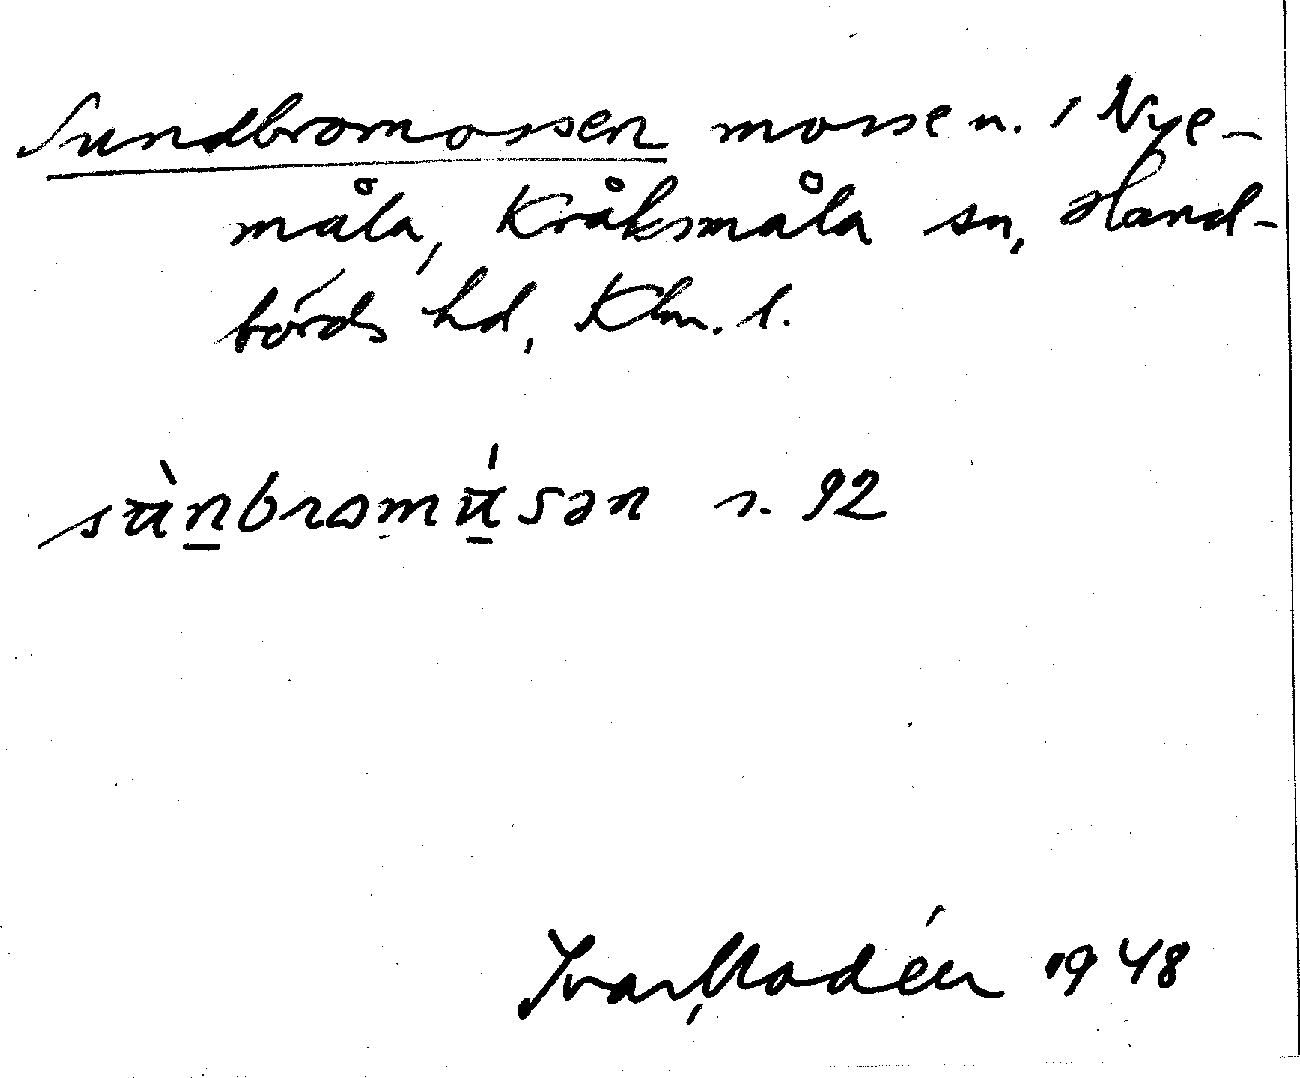 Sundbromossen mosse n. i Nye-
måla, Kråksmåla sn, Hand-
börds hd, Klm. l.
sùnbromúsən s. 92
Ivar Modéer 1948